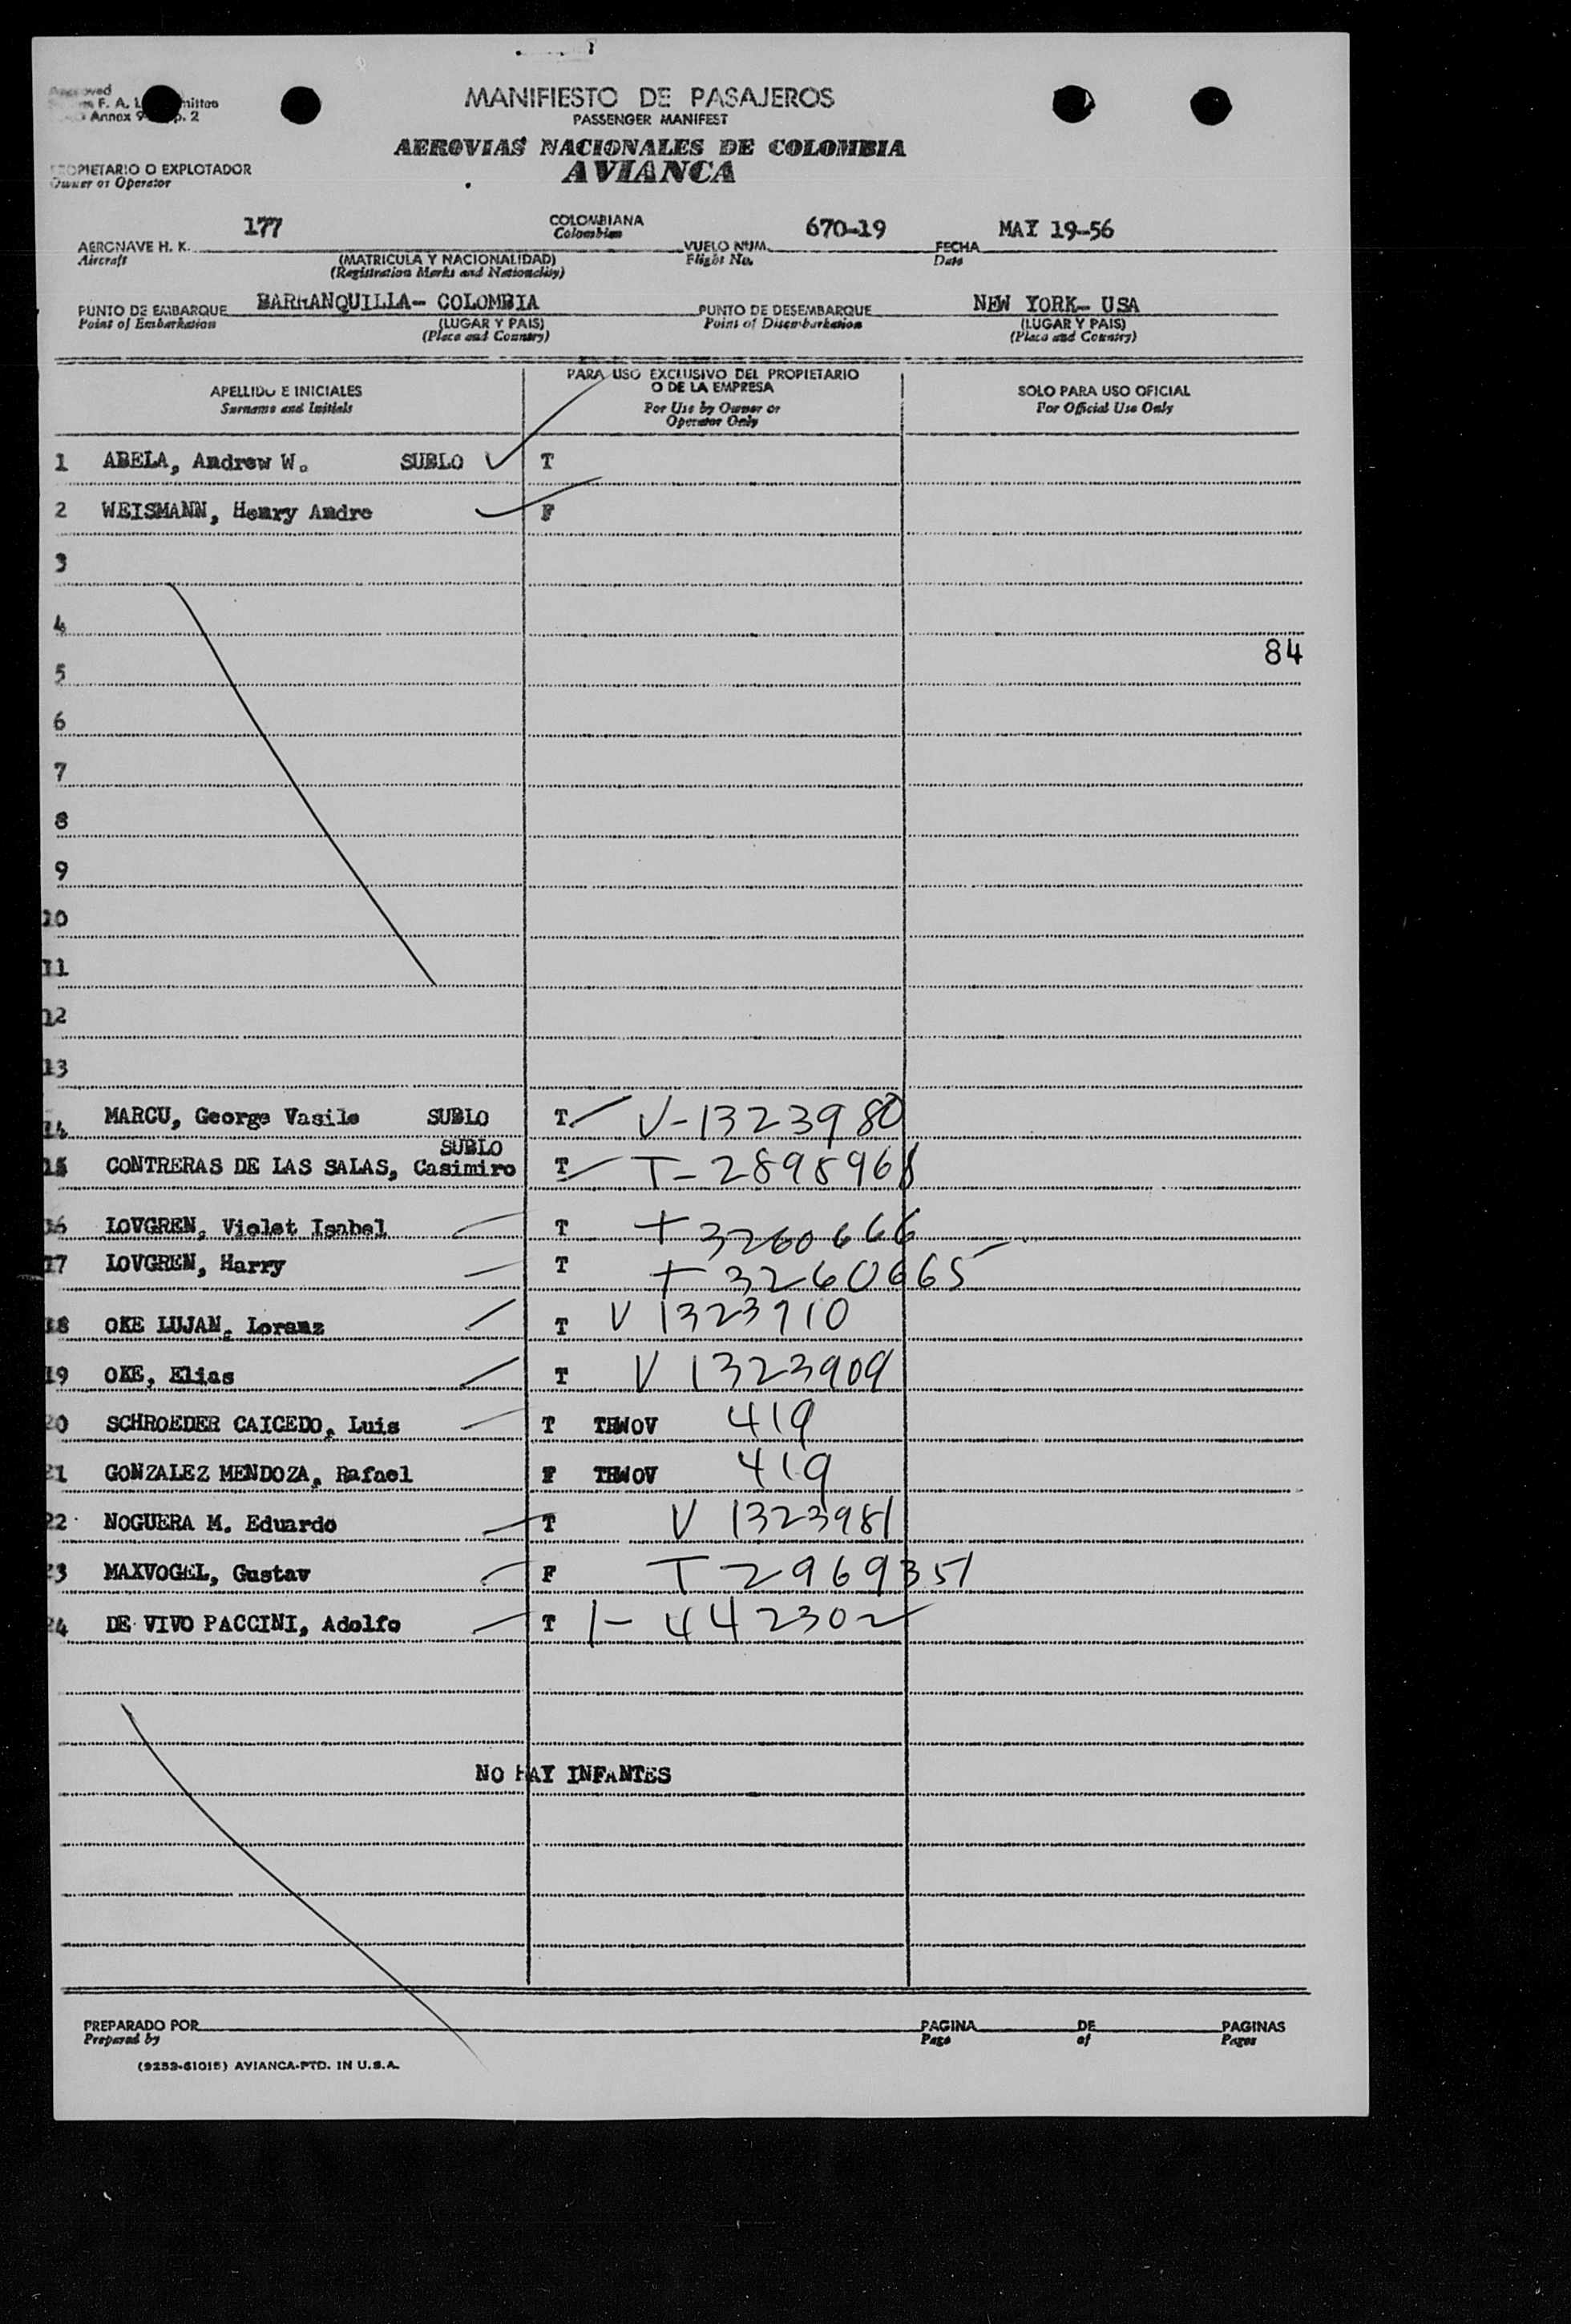 MANIFIESTO DE PASAJEROS
PASSENGER MANIFEST
AEROVIAS NACIONALES DE COLOMBIA
AVIANCA
F. A. L.
Annex 9 p. 2
PROPIETARIO O EXPLOTADOR
Owner or Operator
177 COLOMBIANA 670-19 MAY 19-56
Colombian
AERONAVE H. K. VUELO NUM. FECHA
Aircraft (MATRICULA Y NACIONALIDAD) Flight No. Date
(Registration Marks and Nationality)
PUNTO DE EMBARQUE BARRANQUILLA- COLOMBIA PUNTO DE DESEMBARQUE NEW YORK- USA
Point of Embarkation (LUGAR Y PAIS) Point of Disembarkation (LUGAR Y PAIS)
(Place and Country) (Place and Country)
APELLIDO E INICIALES PARA USO EXCLUSIVO DEL PROPIETARIO O DE LA EMPRESA SOLO PARA USO OFICIAL
Surname and Initials For Use by Owner or Operator Only For Official Use Only
1 ABELA, Andrew W. SUBLO T
2 WEISMANN, Henry Andre F
3
4
84
5
6
7
8
9
10
11
12
13
14 MARCU, George Vasile SUBLO T V-1323980
SUBLO
15 CONTRERAS DE LAS SALAS, Casimiro T T-2898968
16 LOVGREN, Violet Isabel T T 3260666
17 LOVGREN, Harry T T 3260665
18 OKE LUJAN, Loranz T V 1323910
19 OKE, Elias T V 1323909
20 SCHROEDER CAICEDO, Luis T TRWOV 419
21 GONZALEZ MENDOZA, Rafael F TRWOV 419
22 NOGUERA M. Eduardo T V 1323981
23 MAXVOGEL, Gustav F T 2969351
24 DE VIVO PACCINI, Adolfo T 1-442302
NO HAY INFANTES
PREPARADO POR PAGINA DE PAGINAS
Prepared by Page of Pages
(9253-61015) AVIANCA-PTD. IN U.S.A.